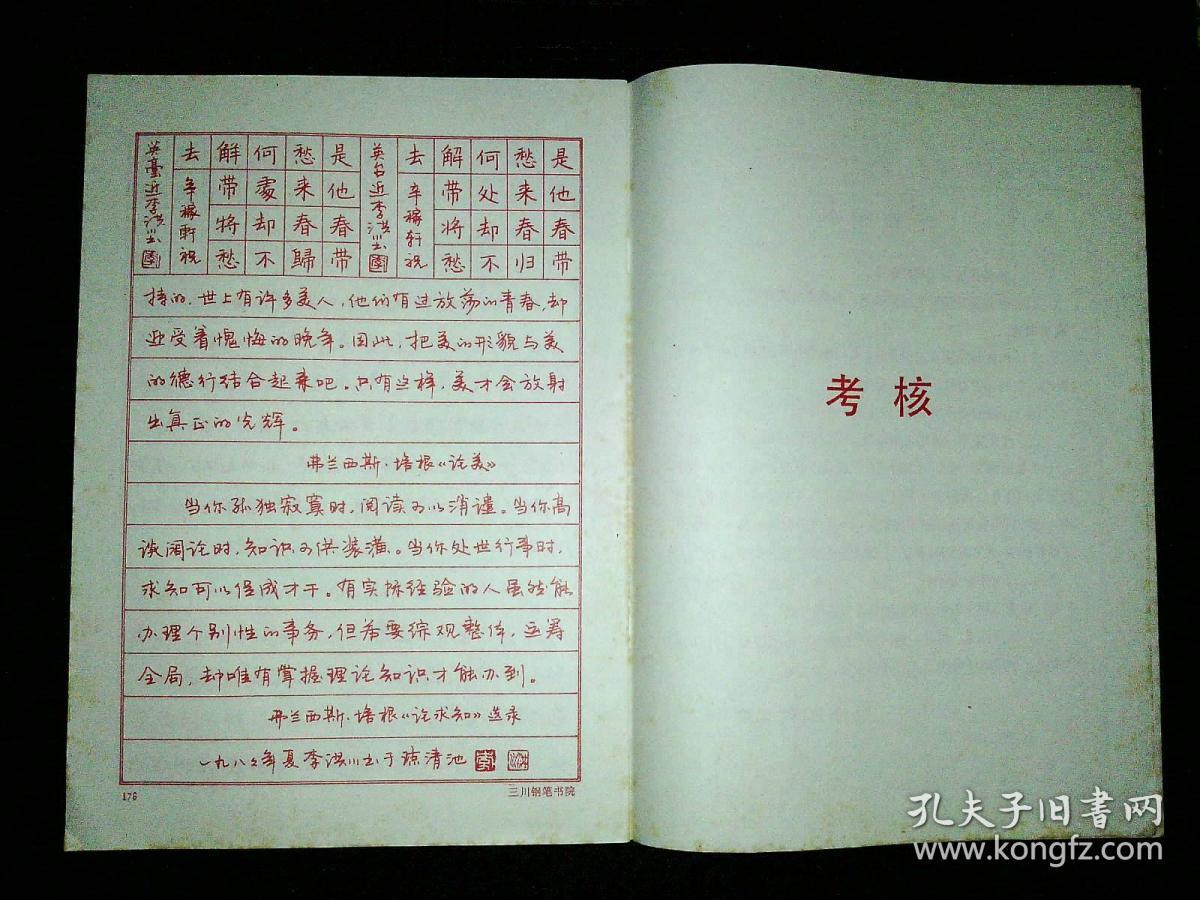 是他春带
愁来春归
何处却不
解带将愁
去 辛稼轩祝
英台近 李洪川书
是他春带
愁来春歸
何處却不
解带将愁
去 辛稼軒祝
英臺近 李洪川书
持的。世上有许多美人,他们有过放荡的青春,却
迎受着愧悔的晚年。因此,把美的形貌与美
的德行结合起来吧。只有这样,美才会放射
出真正的光辉。
弗兰西斯·培根《论美》
当你孤独寂寞时,阅读可以消遣。当你高
谈阔论时,知识可供装潢。当你处世行事时,
求知可以促成才干。有实际经验的人虽然能
办理个别性的事务,但若要综观整体,运筹
全局,却唯有掌握理论知识才能办到。
弗兰西斯·培根《论求知》选录
一九八八年夏李洪川书于琼清池
176
三川钢笔书院
考核
孔夫子旧书网
www.kongfz.com